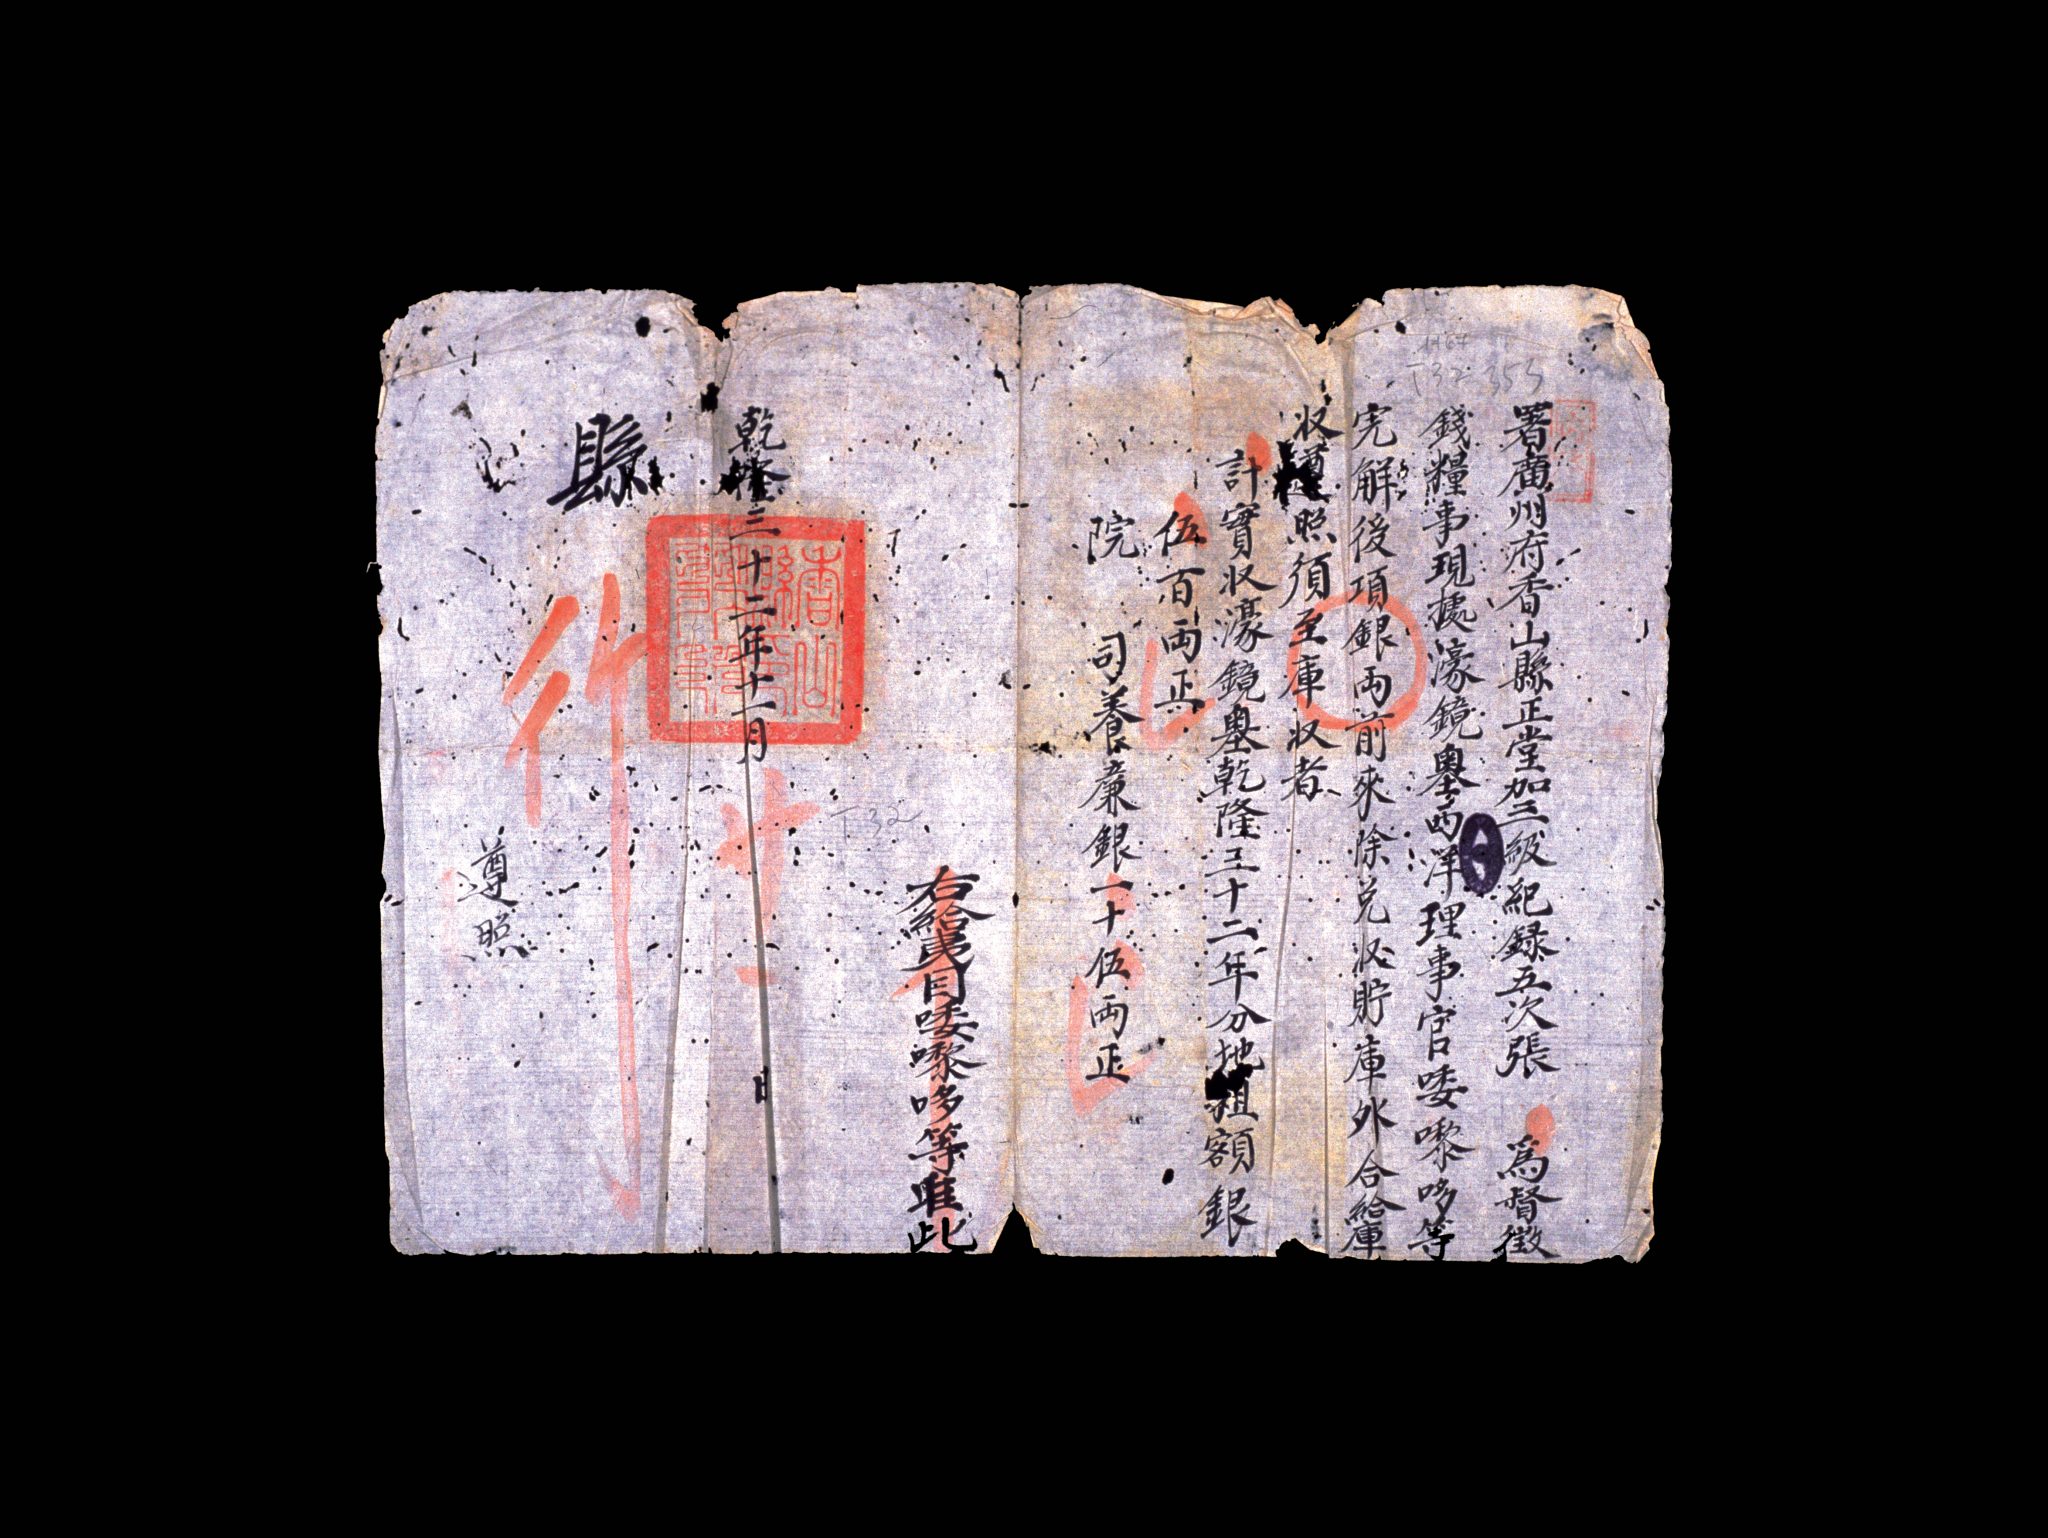 署廣州府香山縣正堂加三級紀録五次張 為督徵
錢糧事現據濠鏡墺西洋理事官唩嚟哆等
完解後項銀両前來除兌收貯庫外合給庫
收遵照須至庫收者
計實收濠鏡墺乾隆三十二年分地租額銀
伍百両正
院 司養廉銀一十伍両正
右給夷目唩嚟哆等准此
乾隆三十二年十一月 日
廿一
縣
行
遵照
1767
T32 353
T32